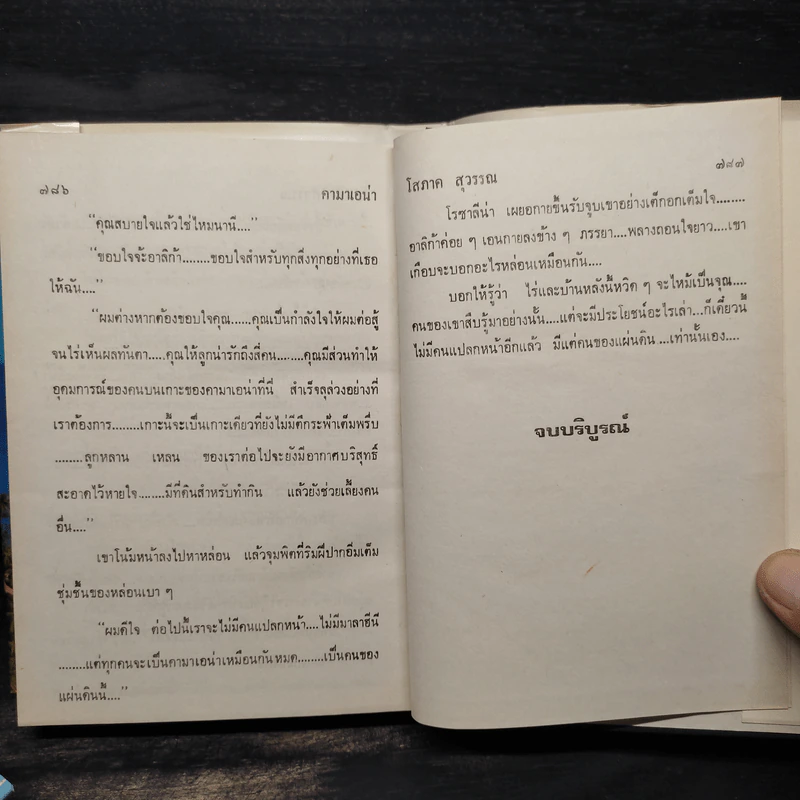 ๗๘๖
คามาเอน่า
"คุณสบายใจแล้วใช่ไหมนานี...."
"ขอบใจจ้ะอาลิก้า........ขอบใจสำหรับทุกสิ่งทุกอย่างที่เธอ
ให้ฉัน...."
"ผมต่างหากต้องขอบใจคุณ......คุณเป็นกำลังใจให้ผมต่อสู้
จนไร่เห็นผลทันตา.....คุณให้ลูกน่ารักถึงสี่คน........คุณมีส่วนทำให้
อุดมการณ์ของคนบนเกาะของคามาเอน่าที่นี่ สำเร็จลุล่วงอย่างที่
เราต้องการ........เกาะนี้จะเป็นเกาะเดียวที่ยังไม่มีตึกระฟ้าเต็มพรืบ
........ลูกหลาน เหลน ของเราต่อไปจะยังมีอากาศบริสุทธิ์
สะอาดไว้หายใจ........มีที่ดินสำหรับทำกิน แล้วยังช่วยเลี้ยงคน
อื่น...."
เขาโน้มหน้าลงไปหาหล่อน แล้วจุมพิตที่ริมฝีปากอิ่มเต็ม
ชุ่มชื้นของหล่อนเบา ๆ
"ผมดีใจ ต่อไปนี้เราจะไม่มีคนแปลกหน้า....ไม่มีมาลาฮีนี
........แต่ทุกคนจะเป็นคามาเอน่าเหมือนกันหมด........เป็นคนของ
แผ่นดินนี้...."
โสภาค สุวรรณ
๗๘๗
โรซาลีน่า เผยอกายขึ้นรับจูบเขาอย่างเต็กอกเต็มใจ........
อาลิก้าค่อย ๆ เอนกายลงข้าง ๆ ภรรยา....พลางถอนใจยาว....เขา
เกือบจะบอกอะไรหล่อนเหมือนกัน....
บอกให้รู้ว่า ไร่และบ้านหลังนี้หวิด ๆ จะไหม้เป็นจุณ....
คนของเขาสืบรู้มาอย่างนั้น....แต่จะมีประโยชน์อะไรเล่า....ก็เดี๋ยวนี้
ไม่มีคนแปลกหน้าอีกแล้ว มีแต่คนของแผ่นดิน ...เท่านั้นเอง....
จบบริบูรณ์